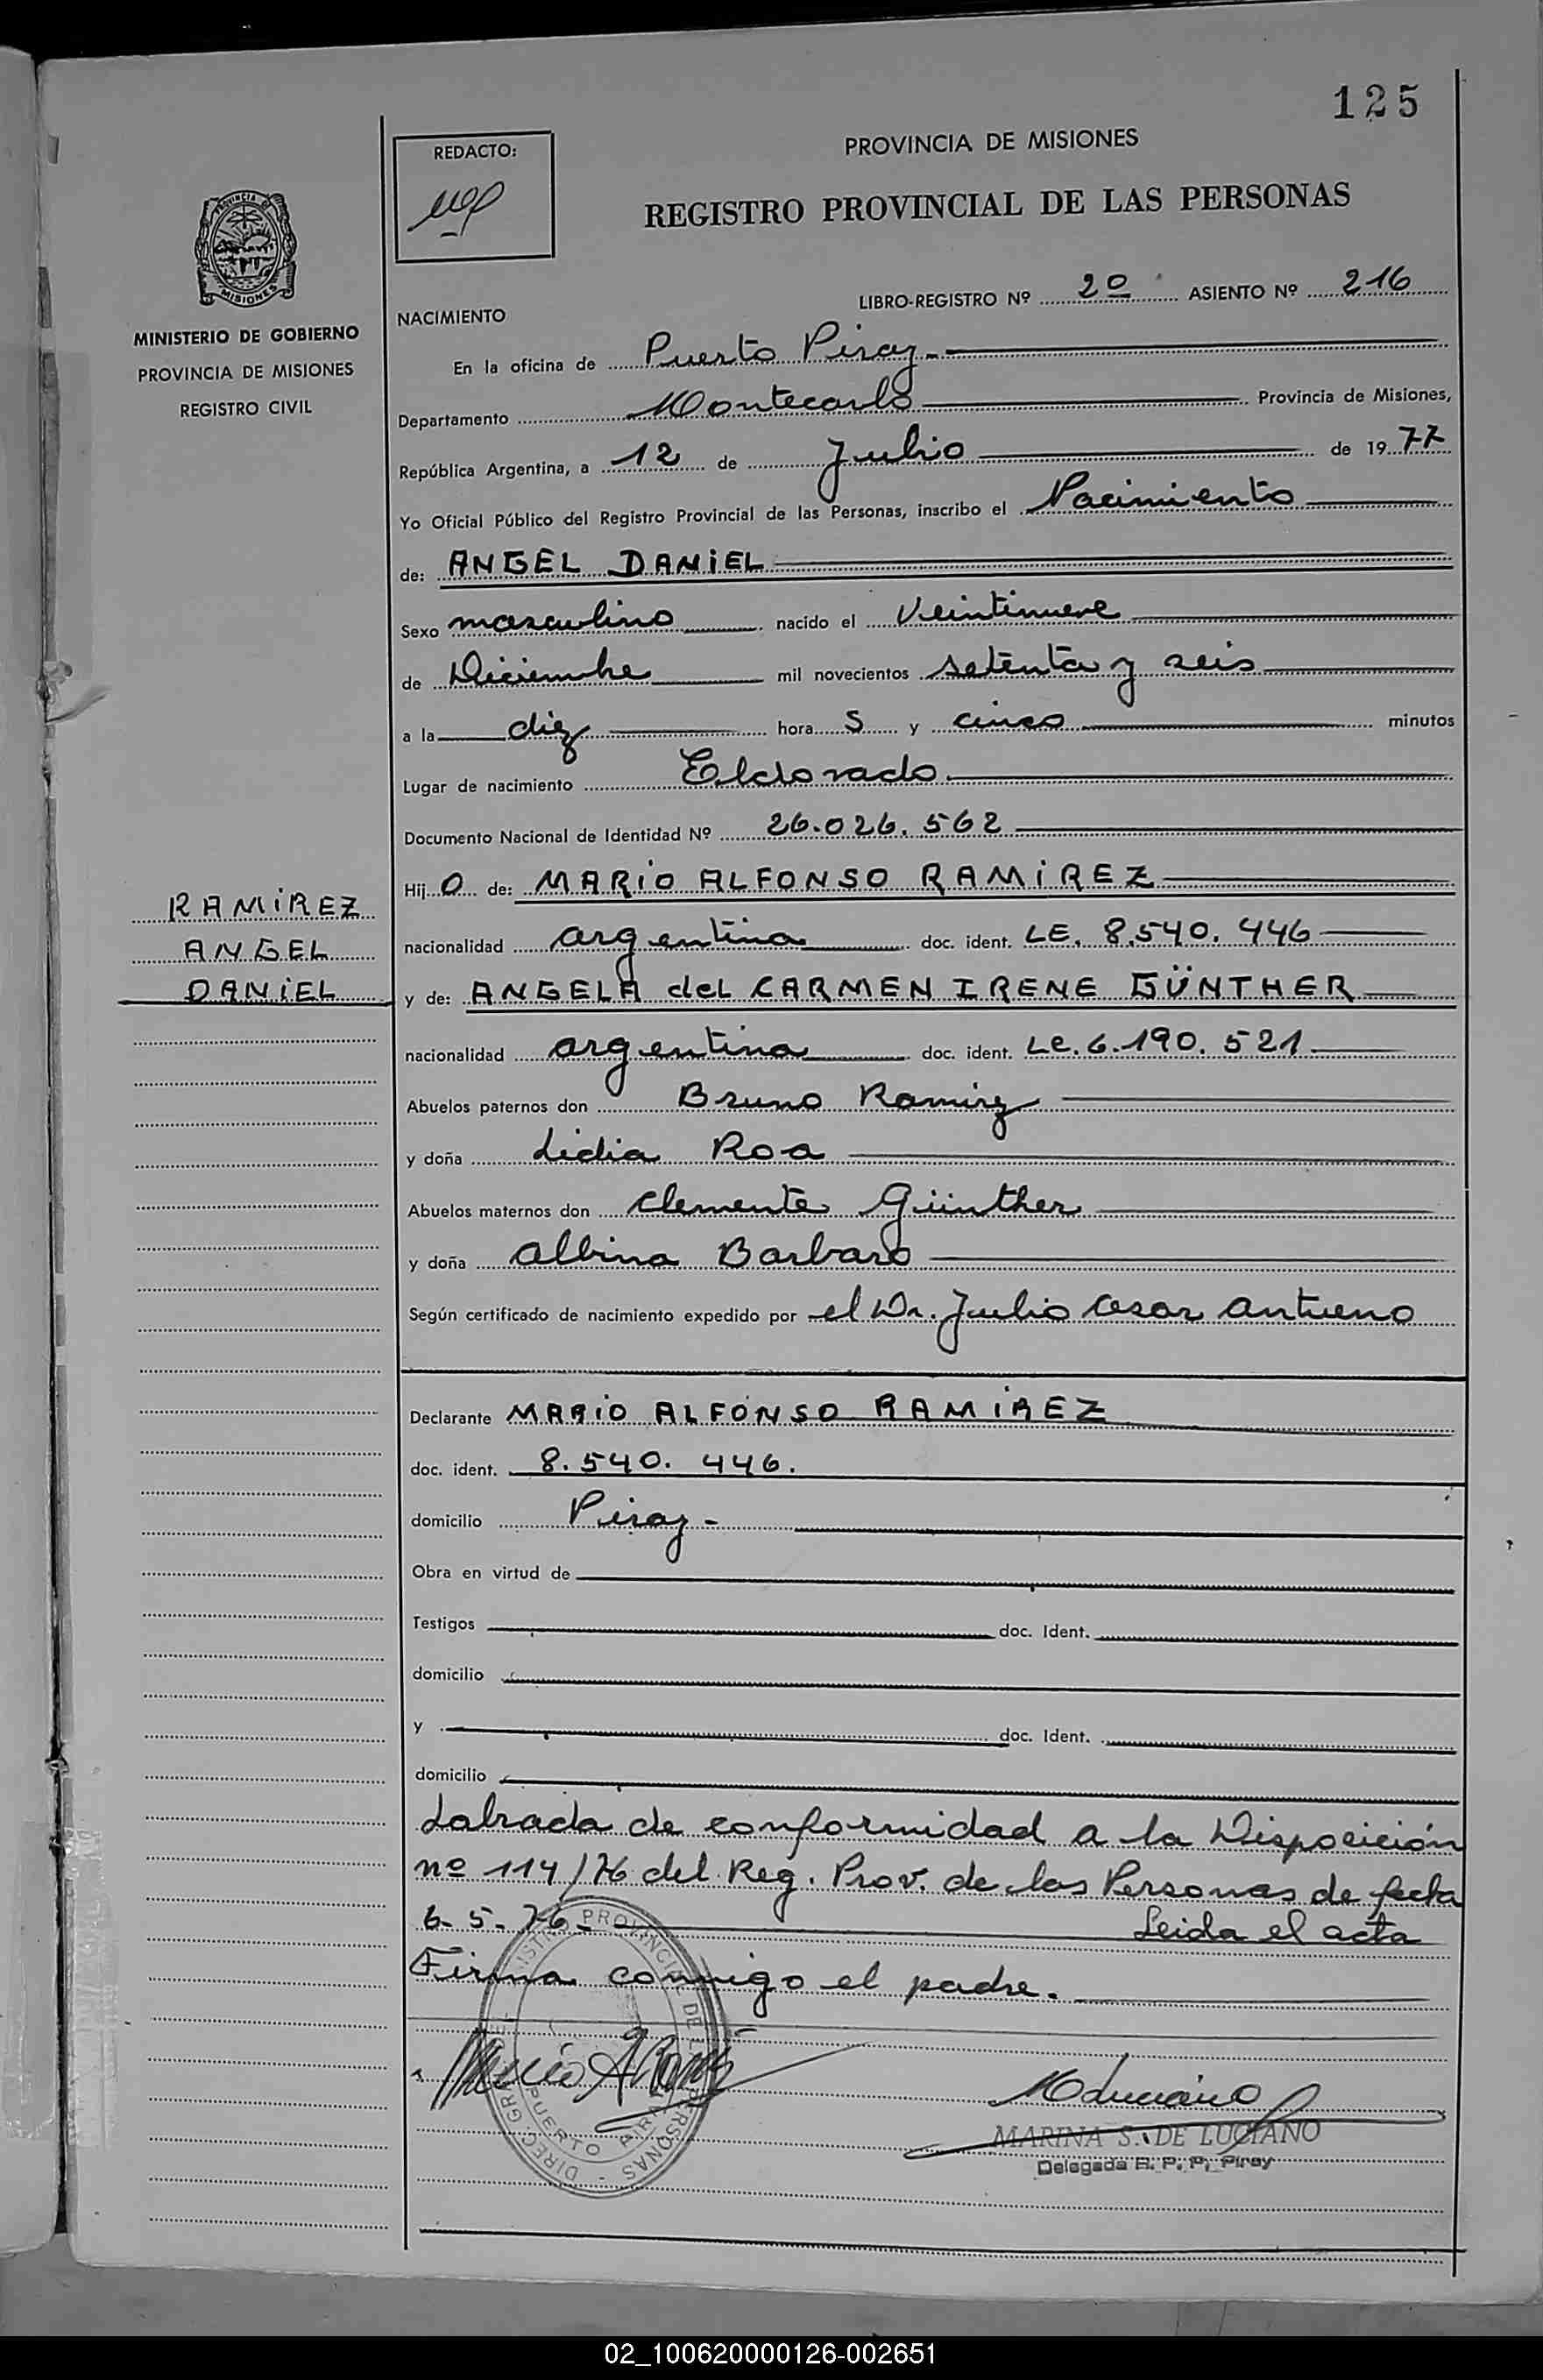 125
REDACTO:
PROVINCIA DE MISIONES
REGISTRO PROVINCIAL DE LAS PERSONAS
PROVINCIA DE
MISIONES
MINISTERIO DE GOBIERNO
PROVINCIA DE MISIONES
REGISTRO CIVIL
LIBRO-REGISTRO Nº 2º ASIENTO Nº 216
NACIMIENTO
En la oficina de Puerto Piray.-
Departamento Montecarlo Provincia de Misiones,
República Argentina, a 12 de Julio de 1977
Yo Oficial Público del Registro Provincial de las Personas, inscribo el Nacimiento
de: ANGEL DANIEL
Sexo masculino nacido el Veintinueve
de Diciembre mil novecientos setenta y seis
a la diez hora s y cinco minutos
Lugar de nacimiento Eldorado
Documento Nacional de Identidad Nº 26.026.562
Hij o de: MARIO ALFONSO RAMIREZ
RAMIREZ
ANGEL
DANIEL
nacionalidad argentina doc. ident. LE. 8.540.446
y de: ANGELA del CARMEN IRENE GÜNTHER
nacionalidad argentina doc. ident. Lc. 6.190.521
Abuelos paternos don Bruno Ramirez
y doña Lidia Roa
Abuelos maternos don Clemente Günther
y doña Albina Barbaro
Según certificado de nacimiento expedido por el Dr. Julio Cesar Antueno
Declarante MARIO ALFONSO RAMIREZ
doc. ident. 8.540.446.
domicilio Piray-
Obra en virtud de
Testigos doc. Ident.
domicilio
y doc. Ident.
domicilio
Labrada de conformidad a la Disposición
nº 114/76 del Reg. Prov. de las Personas de fecha
6-5-76- Leida el acta
Firma conmigo el padre.
PUERTO PIRAY
MARINA S. DE LUCIANO
Delegada R. P. P. Piray
02_100620000126-002651